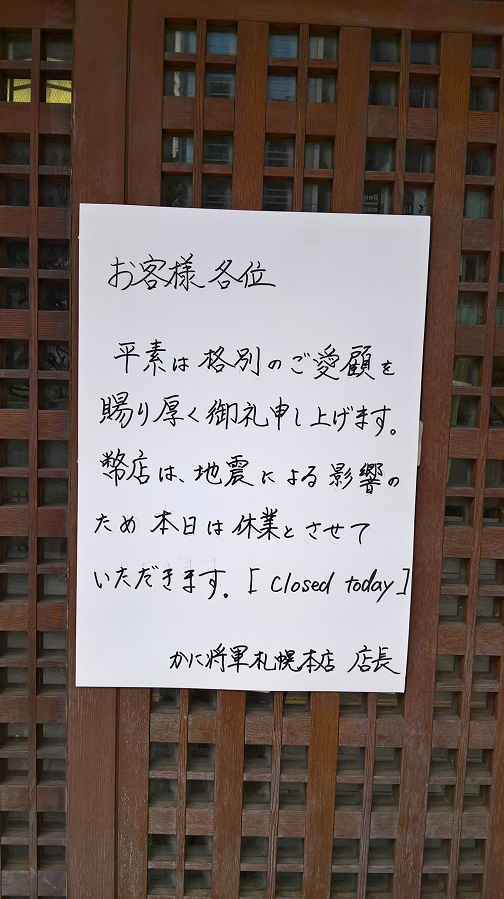 お客様各位
平素は格別のご愛顧を
賜り厚く御礼申し上げます。
幣店は、地震による影響の
ため本日は休業とさせて
いただきます。[Closed today]
かに将軍札幌本店 店長